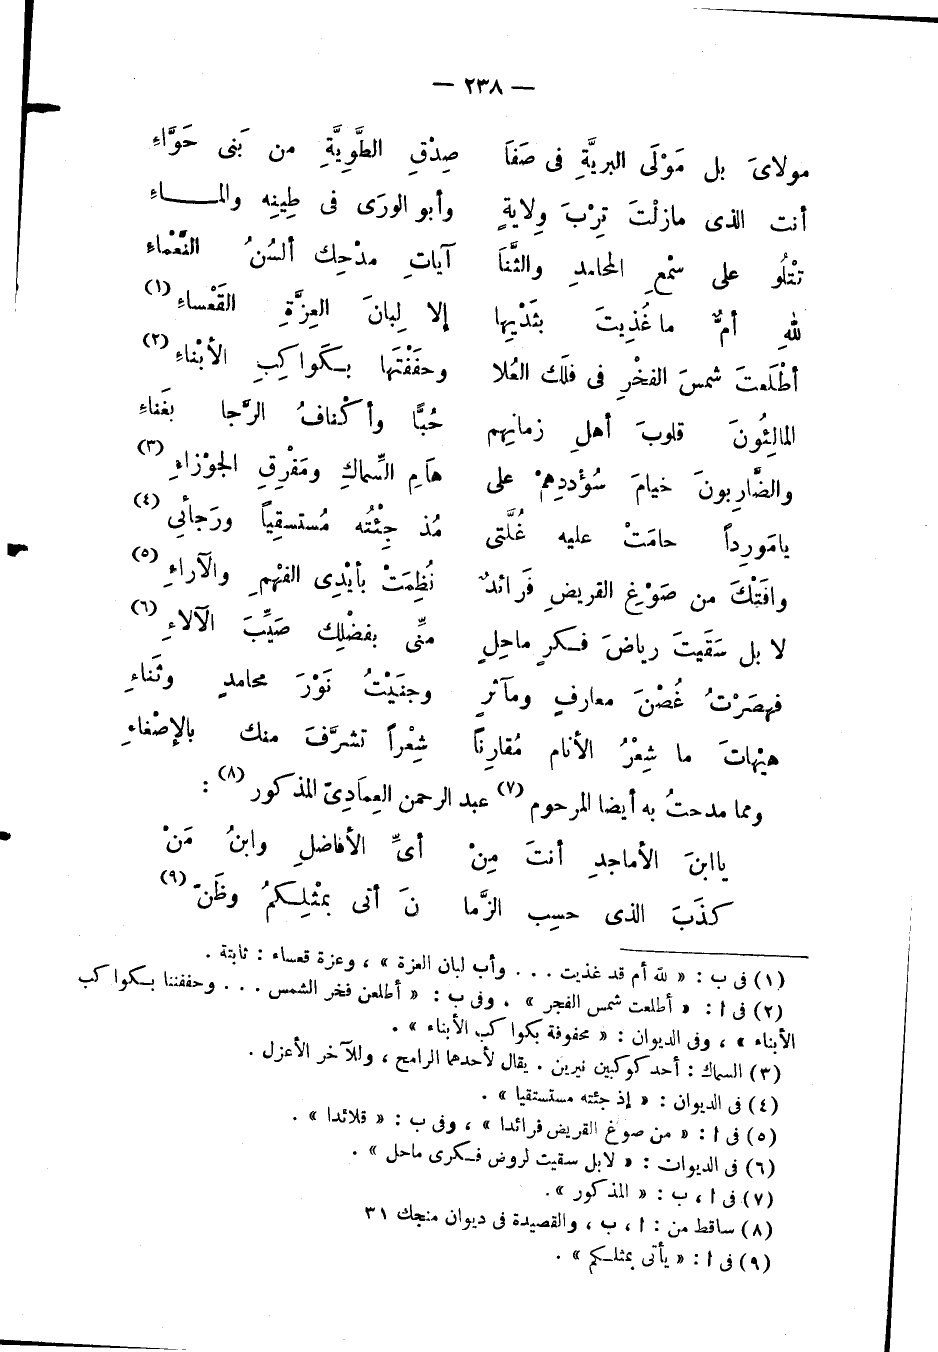 — ٢٣٨ —
مولاىَ بل مَوْلَى البريَّةِ فى صَفَا صِدْقِ الطَّوِيَّةِ من بَنى حَوَّاءِ
أنت الذى مازلْتَ تِرْبَ وِلايةٍ وأبو الورَى فى طِينِه والمــــاءِ
تتْلُو على سمْعِ المحامدِ والثَّنَا آياتِ مدْحِك ألسُنُ النَّعْماءِ
للهِ أمٌّ ماغُذِيتَ بثَدْيِها إلا لِبانَ العِزَّةِ القَعْساءِ (١)
أطْلَعتَ شمسَ الفخْرِ فى فلَك العُلا وحفَفْتَها بكَواكِبِ الأبْناءِ (٢)
المالِئُونَ قلوبَ أهلِ زمانِهم حُبًّا وأكْنافُ الرَّجا بغَناءِ
والضَّارِبونَ خيامَ سُؤْددِهمْ على هَامِ السِّماكِ ومَفْرِقِ الجوْزاءِ (٣)
يامَورِداً حامَتْ عليه غُلَّتى مُذ جِئْتُه مُستسقِياً ورَجأئِى (٤)
وافَتْكَ من صَوْغِ القريضِ فَرائدٌ نُظِمَتْ بأيْدِى الفهْمِ والآراءِ (٥)
لا بل سَقَيتَ رياضَ فكرٍ ماحِلٍ منِّى بفضْلِك صَيِّبَ الآلاءِ (٦)
فهصَرْتُ غُصْنَ معارفٍ ومآثرٍ وجنَيْتُ نَوْرَ محامدٍ وثَناءِ
هيْهاتَ ما شِعْرُ الأنام مُقارِناً شِعْراً تشرَّفَ منك بالإصْغاءِ
ومما مدحتُ به أيضا المرحوم (٧) عبد الرحمن العِمَادِىّ المذكور (٨) :
ياابنَ الأماجدِ أنتَ مِنْ أىِّ الأفاضلِ وابنُ مَنْ
كذَبَ الذى حسِب الزَّما نَ أتى بمثْلِكمُ وظَنّ (٩)
(١) فى ب : « لله أم قد غذيت . . . وأب لبان العزة » ، وعزة قعساء : ثابتة .
(٢) فى ا : « أطلعت شمس الفجر » . وفى ب : « أطلعن فخر الشمس . . . وحففننا بكواكب
الأبناء » ، وفى الديوان : « محفوفة بكواكب الأبناء » .
(٣) السماك : أحد كوكبين نيرين . يقال لأحدهما الرامح ، وللآخر الأعزل .
(٤) فى الديوان : « إذ جئته مستسقيا » .
(٥) فى ا : « من صوغ القريض فرائدا » ، وفى ب : « قلائدا » .
(٦) فى الديوات : « لابل سقيت لروض فكرى ماحل » .
(٧) فى ا ، ب : « المذكور » .
(٨) ساقط من : ا ، ب ، والقصيدة فى ديوان منجك ٣١
(٩) فى ا : « يأتى بمثلكم » .